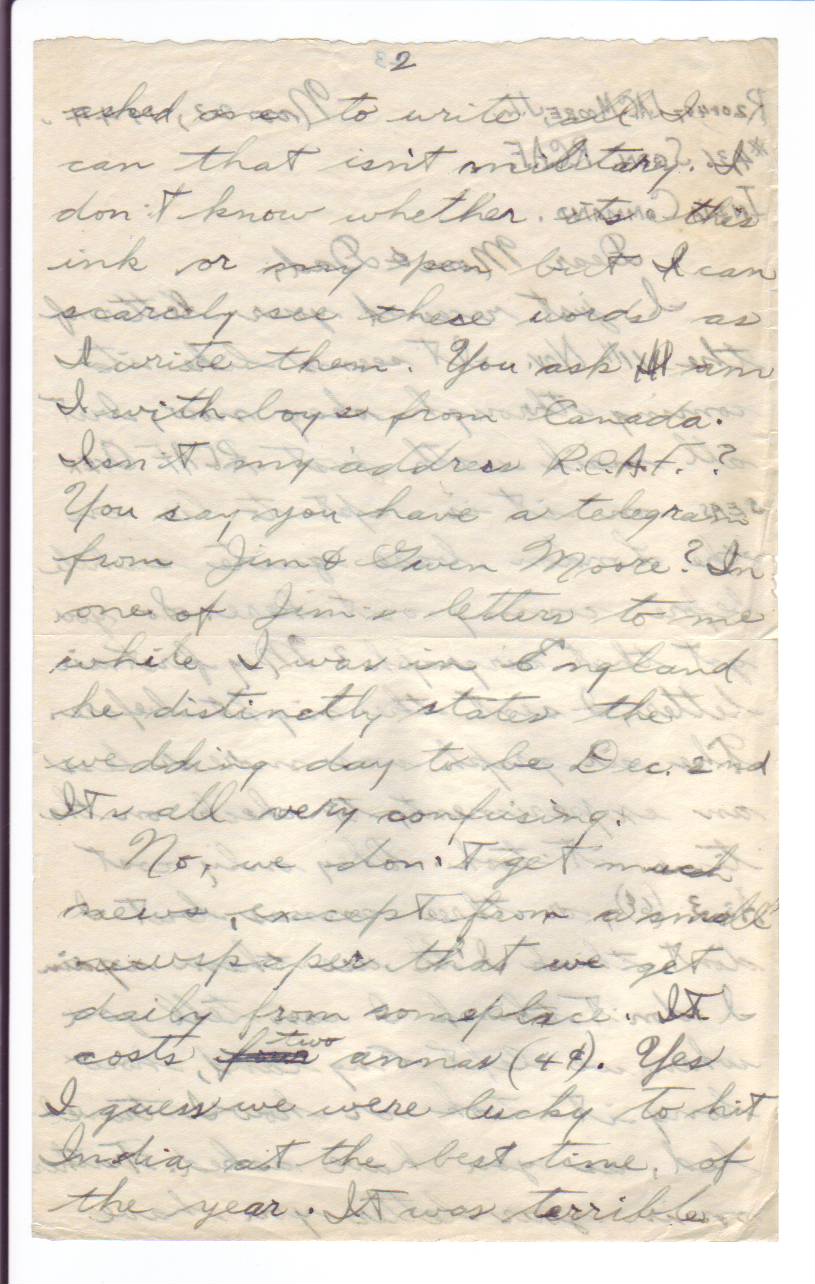 2
asked, one to write all I
can that isn't military. I
don't know whether its this
ink or my pen but I can
scarcely see these words as
I write them. You ask am
I with boys from Canada.
Isn't my address R.C.A.F.?
You say you have a telegram
from Jim & Gwen Moore? In
one of Jim's letters to me
while I was in England
he distinctly states the
wedding day to be Dec. 2nd
It's all very confusing.
No, we don't get much
news, except from a small
newspaper that we get
daily from someplace. It
costs four two annas (4¢). Yes
I guess we were lucky to hit
India at the best time, of
the year. It was terrible